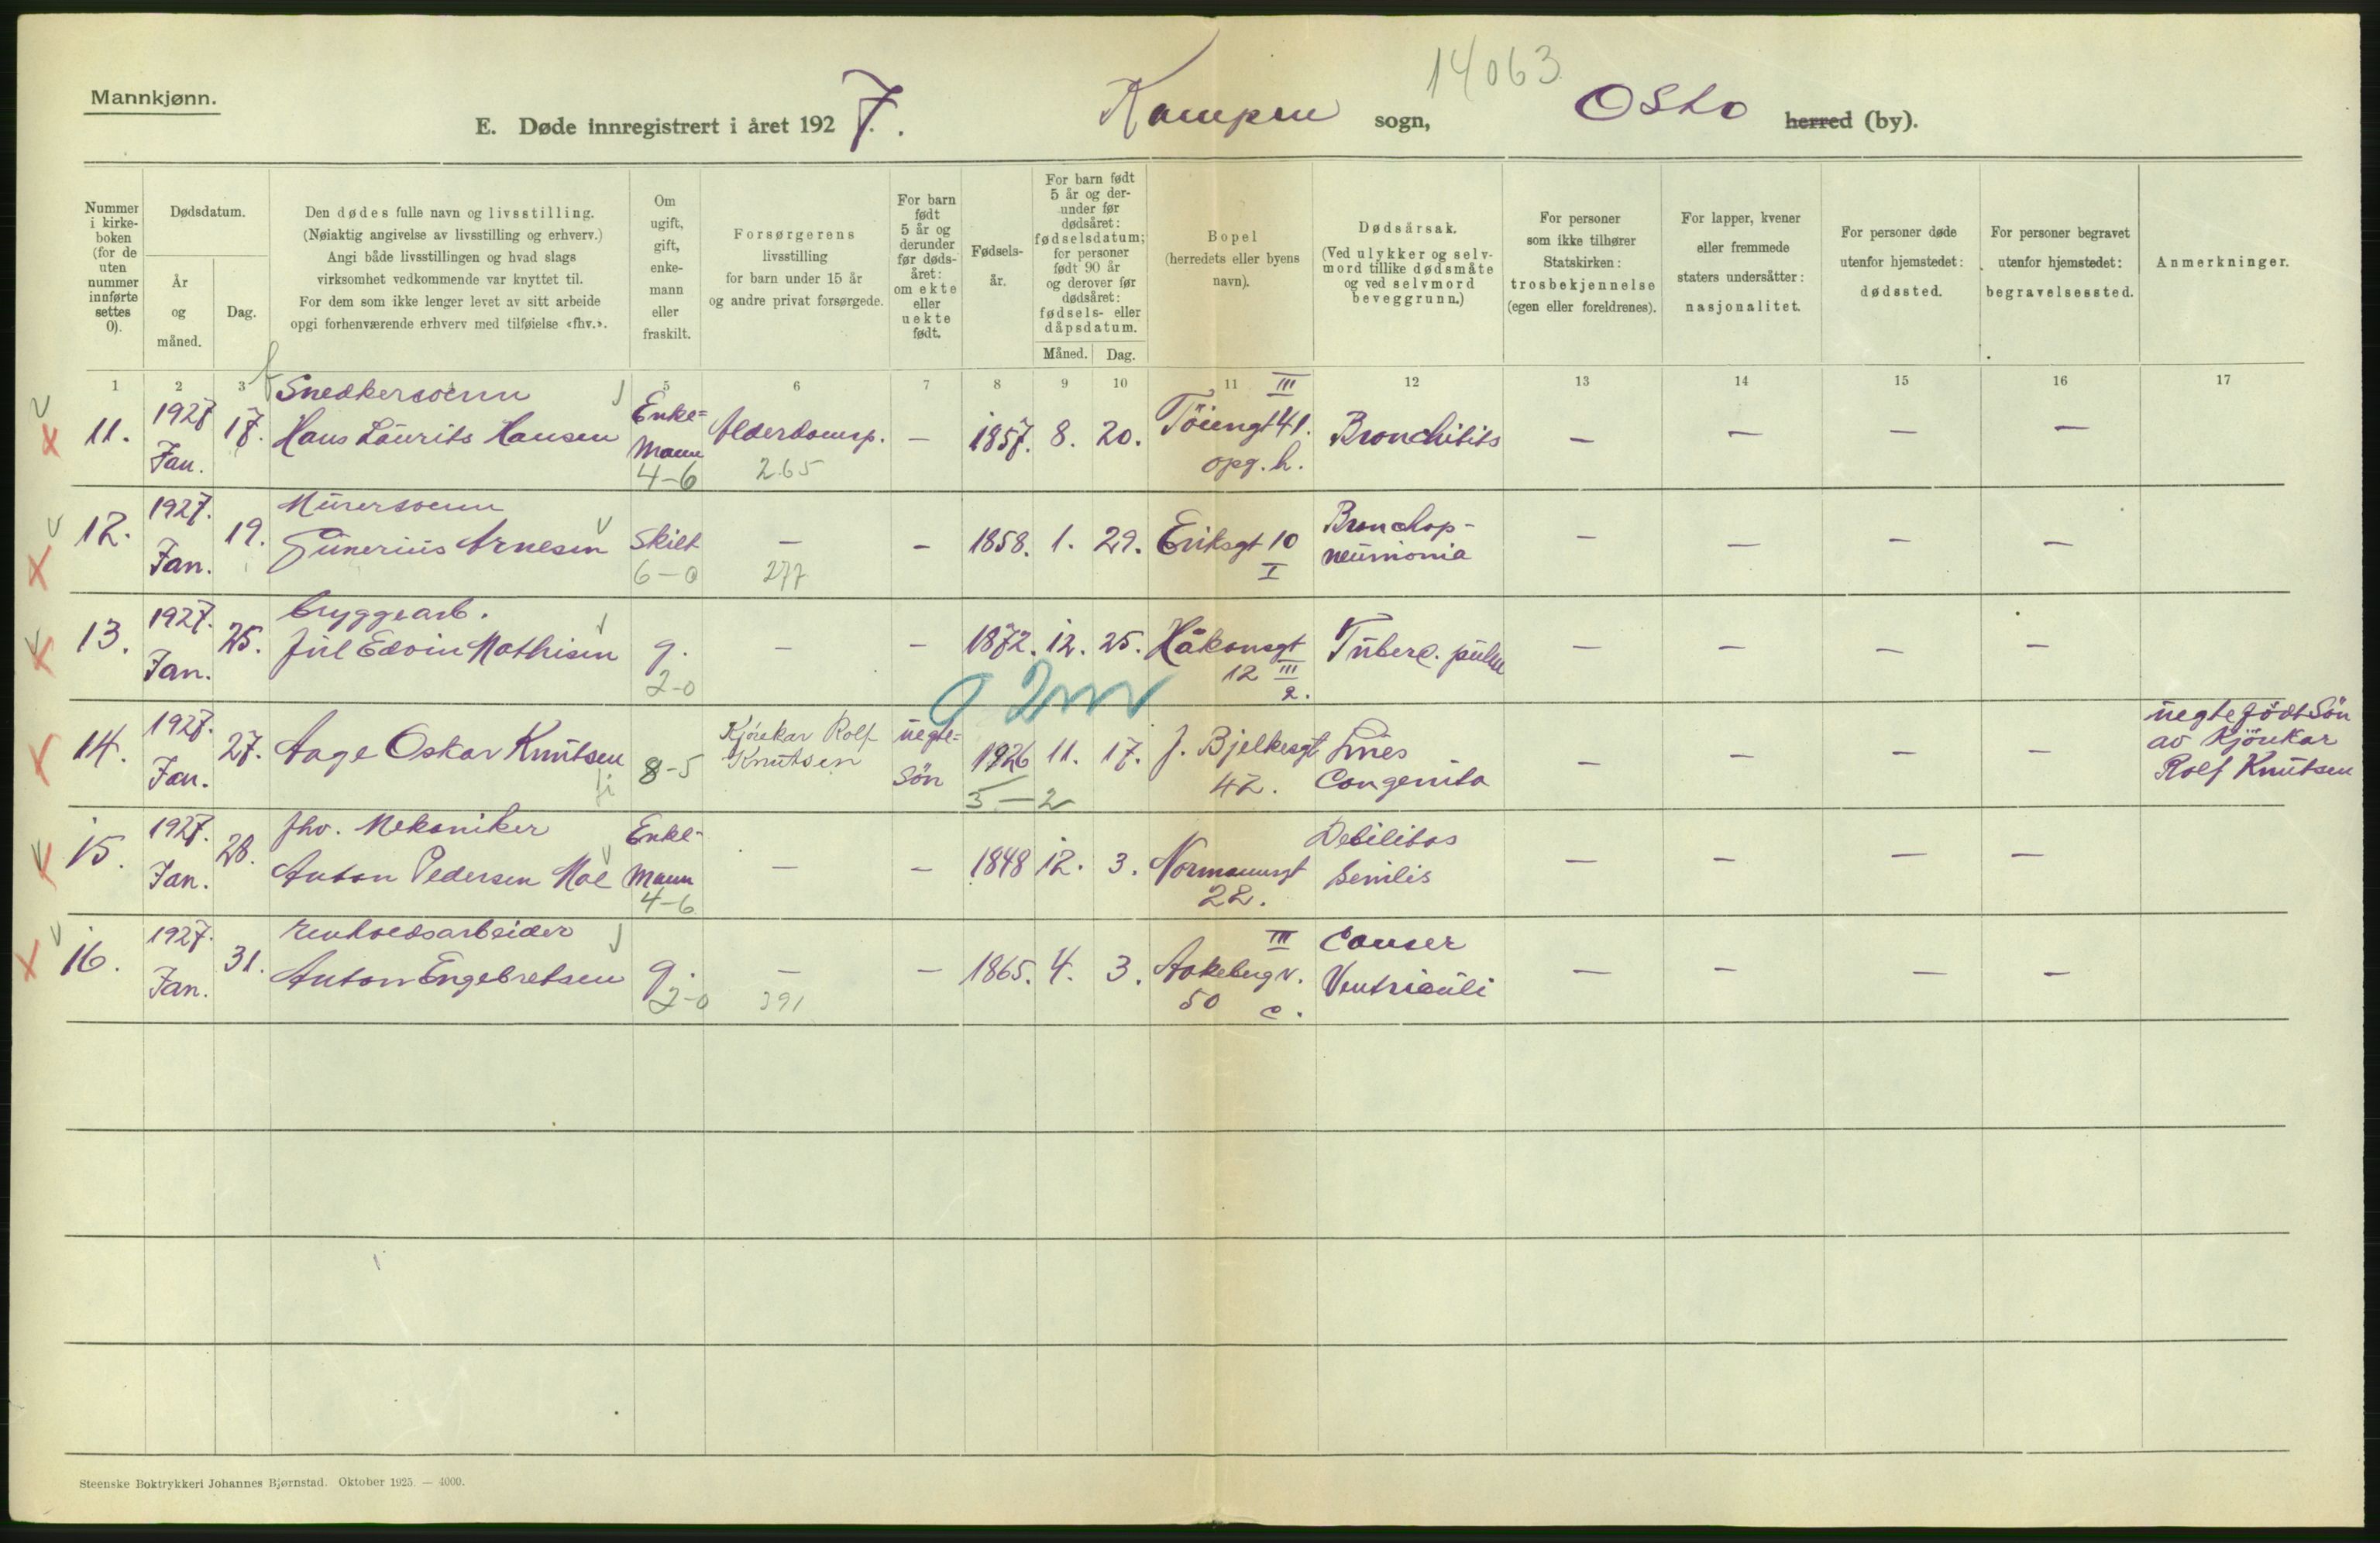 Mannkjønn.
14063
E. Døde innregistrert i året 1927. Kampen sogn, Oslo herred (by).
Nummer i kirke-boken (for de uten nummer innførte settes 0).
Dødsdatum.
År og måned.
Dag.
Den dødes fulle navn og livsstilling.
(Nøiaktig angivelse av livsstilling og erhverv.)
Angi både livsstillingen og hvad slags
virksomhet vedkommende var knyttet til.
For dem som ikke lenger levet av sitt arbeide
opgi forhenværende erhverv med tilføielse «fhv.».
Om ugift, gift, enke-mann eller fraskilt.
Forsørgerens
livsstilling
for barn under 15 år
og andre privat forsørgede.
For barn født 5 år og derunder før døds-året: om ekte eller uekte født.
Fødsels-år.
For barn født 5 år og der-under før dødsåret: fødselsdatum; for personer født 90 år og derover før dødsåret: fødsels- eller dåpsdatum.
Måned. Dag.
Bopel
(herredets eller byens
navn).
Dødsårsak.
(Ved ulykker og selv-
mord tillike dødsmåte
og ved selvmord
beveggrunn.)
For personer
som ikke tilhører
Statskirken:
trosbekjennelse
(egen eller foreldrenes).
For lapper, kvener
eller fremmede
staters undersåtter:
nasjonalitet.
For personer døde
utenfor hjemstedet:
dødssted.
For personer begravet
utenfor hjemstedet:
begravelsessted.
Anmerkninger.
1 2 3 5 6 7 8 9 10 11 12 13 14 15 16 17
11. 1927 Jan. 17. Snedkersvenn
Hans Laurits Hansen Enke-Mann 4-6 Alderdomsp. 265 — 1857. 8. 20. Töiengt 41. III opg. h. Bronchitits — — — —
12. 1927. Jan. 19. Mürersvenn
Günerius Arnesen Skilt 6-0 — 277 — 1858. 1. 29. Eriksgt 10 I Bronchop-neümonia — — — —
13. 1927. Jan. 25. bryggearb.
Jül Edvin Mathisen g. 2-0 — — 1872. 12. 25. Håkonsgt 12 III 2. Tüberc. pülm — — — —
14. 1927. Jan. 27. Aage Oskar Knütsen 8-5 Kjörekar Rolf Knütsen üegte-Sön 1926 5-2 11. 17. J. Bjelkesgt 42. Lües Congenita — — — — üegte född Sön
av Kjörekar
Rolf Knütsen
15. 1927. Jan. 28. fhv. Mekaniker
Anton Pedersen Moe Enke-Mann 4-6 — — 1848 12. 3. Normannsgt 22. Debilitas Senilis — — — —
16. 1927. Jan. 31. renholdsarbeider
Anton Engebretsen g. 2-0 — 391 — 1865. 4. 3. Aakebergv. III 50 c. Cancer Ventricüli — — — —
Steenske Boktrykkeri Johannes Bjørnstad. Oktober 1925. — 4000.